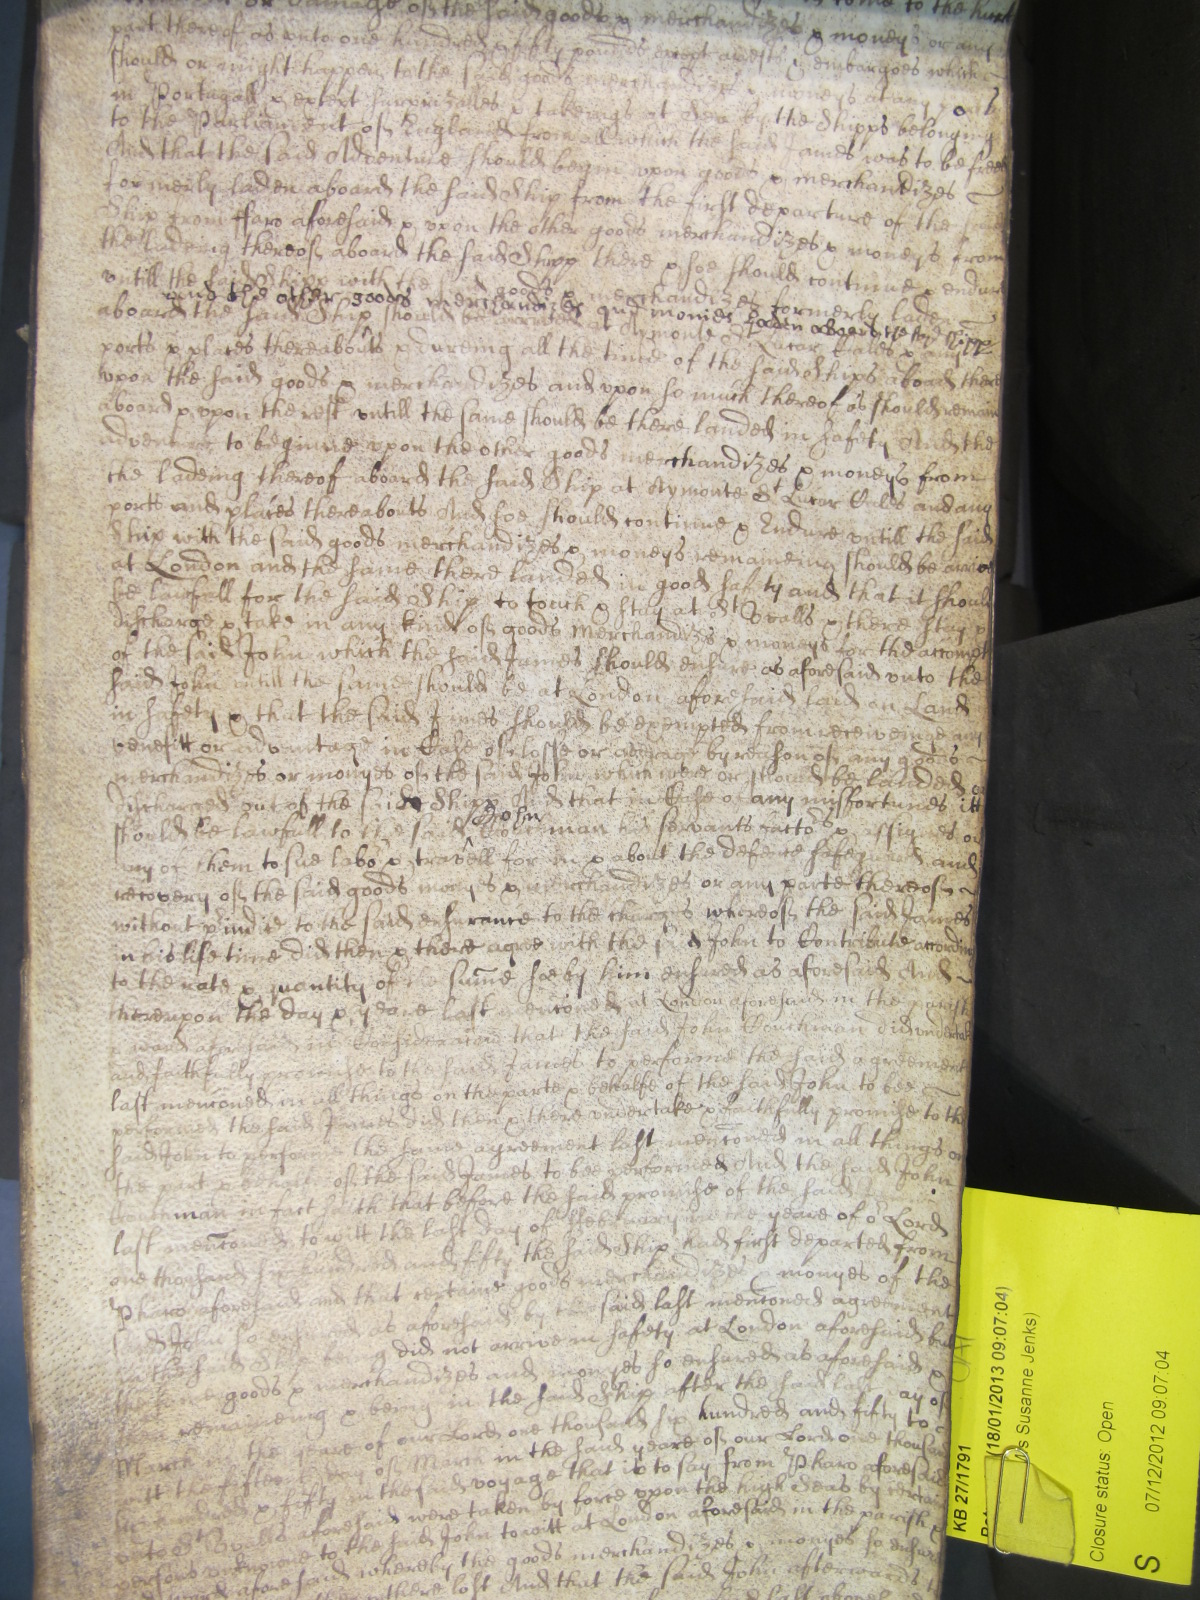 or damage of the said goods & merchandizes & moneys or any
part thereof as unto one hundred & fifty pounds except arests & embargoes which
should or might happen to the said goods merchandizes & moneys at any
in Portugall & except surprizalles & takeings at Sea by the Shipps belonging
to the Parliament of England from all which the said James was to be free
And that the said Adventure should begin upon goods & merchandizes
formerly laden aboard the said Ship from the first departure of the said
Ship from ffaro aforesaid & upon the other goods merchandizes & moneys from
the ladeing thereof aboard the said Shipp there & soe should continue & endure
untill the said Shipp with the said goods & merchandizes formerly laden
and the other goods merchandizes and monies laden aboard the said Shipp
aboard the said Ship should be arrived at Aymonte St Lucar Cales & any
ports & places thereabouts & dureing all the time of the said Ships aboad there
upon the said goods & merchandizes and upon so much thereof as should remain
aboard & upon the rest untill the same should be there landed in safety And the
adventure to beginne upon the other goods merchandizes & moneys from
the ladeing thereof aboard the said Ship at Aymonte St Lucar Cales and any
ports and places thereabouts And soe should continue & Endure untill the said
Ship with the said goods merchandizes & moneys remaineing should be arrived
at London and the same there landed in good safety and that it should
be lawfull for the said Ship to touch & stay at St & there stay &
discharge & take in any kind of goods merchandizes & moneys for the accompt
of the said John which the said James should ensure as aforesaid unto the
said John untill the same should be at London aforesaid laid on Land
in safety & that the said James should be exempted from receiveinge any
benefitt or advantage in Case of losse or average by reason of any goods
merchandizes or monyes of the said John which were or should be landed or
discharged out of the said Shipp And that in Case of any misfortunes itt
John
should be lawfull to the said Couchman his servants factors & assignes or
any of them to sue labor & travell for in & about the defence safeguard and
recovery of the said goods monyes & merchandizes or any parte thereof
without to the said ensurance to the charges whereof the said James
in his life time did then & there agree with the said John to Contribute according
to the rate & quantity of the summe soe by him ensured as aforesaid And
thereupon the day & yeare last menconed at London aforesaid in the parish
& ward aforesaid in Consideracon that the said John Couchman did undertake
and faithfully promise to the said James to performe the said agreement
last menconed in all things on the parte & behalfe of the said John to bee
performed the said James did then & there undertake & faithfully promise to the
said John to performe the same agreement last menconed in all things on
the part & behalfe of the said James to bee performed And the said John
Couchman in fact saith that before the said promise of the said
last menconed to witt the last day of ffebruary in the yeare of or Lord
one thousand six hundred and fifty the said Ship had first departed from
Pharo aforesaid and that certaine goods merchandizes & monyes of the
said John so ensured as aforesaid by the said last menconed agreement
in the said did not arrive in safety at London aforesaid but
the same goods & merchandizes and monyes so ensured as aforesaid &
then remaineing & being in the said Ship after the said last day of
March the yeare of our Lord one thousand six hundred and fifty to
witt the fifteenth day of March in the said yeare of our Lord one thousand
six hundred & fifty in the said voyage that is to say from Pharo aforesaid
to London aforesaid were taken by force upon the high Seas by certain
persons unknowne to the said John to witt at London aforesaid in the parish &
ward aforesaid whereby the goods merchandizes & monyes so ensured
were there lost And that the said John afterwards
KB 27/1791
(18/01/2013 09:07:04)
Ms Susanne Jenks)
Closure status: Open
07/12/2012 09:07:04
S